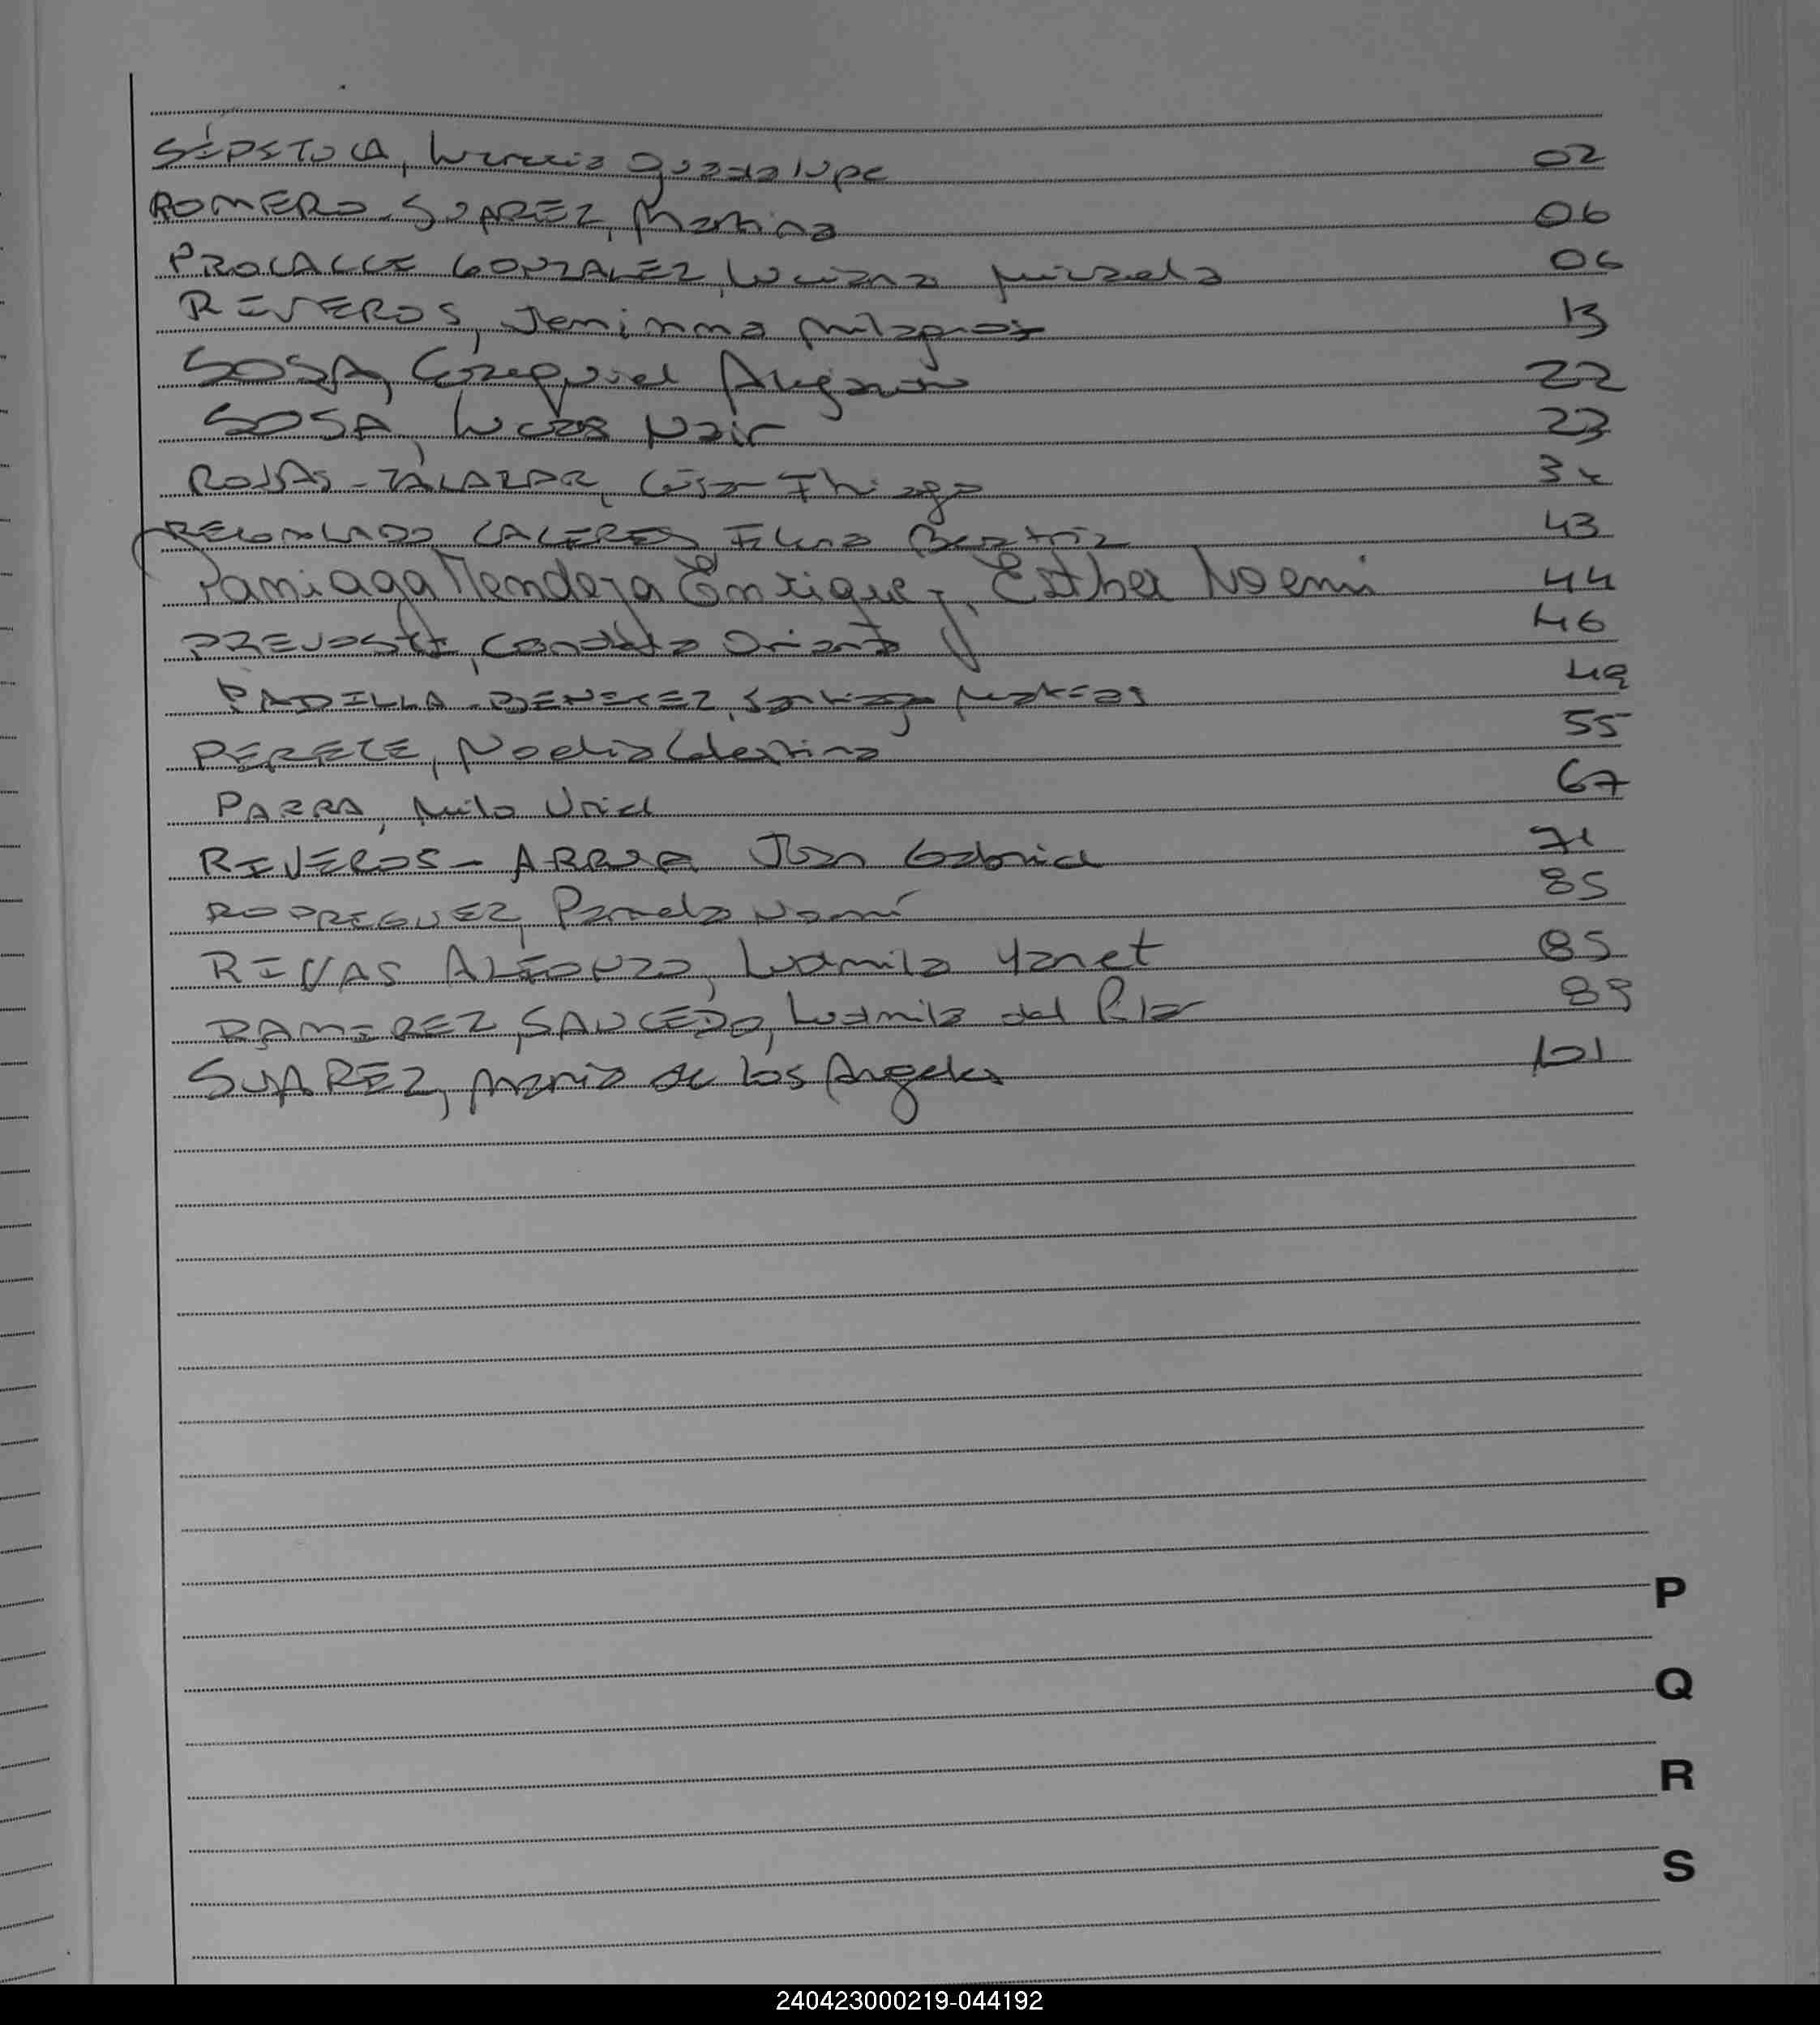 SEPSTULA, Lucrecia Guadalupe 02
ROMERO - SUAREZ, Martina 06
GONZALEZ, Luciana Micaela 06
RIVEROS, Jemimma Milagros 13
SOSA, Ezequiel Alejandro 22
SOSA, Lucas Nair 23
ROJAS - ZALAZAR, César Thiago
REGALADO CACERES, Elena Beatriz 43
Paniaga Mendoza Enrique, Esther Noemi 44
PREVOSTI, Candela Oriana 46
PADILLA - BENITEZ, Santiago Matías 49
Noelia Celestina 55
PARRA, Milo Uriel 67
RIVEROS - Juan Gabriel 71
RODRIGUEZ, Pamela Noemí 85
RIVAS ALFONZO, Ludmila Yanet 85
RAMIREZ, SAUCEDO, Ludmila del Pilar 89
SUAREZ, Maria de los Angeles 101
P
Q
R
S
240423000219-044192